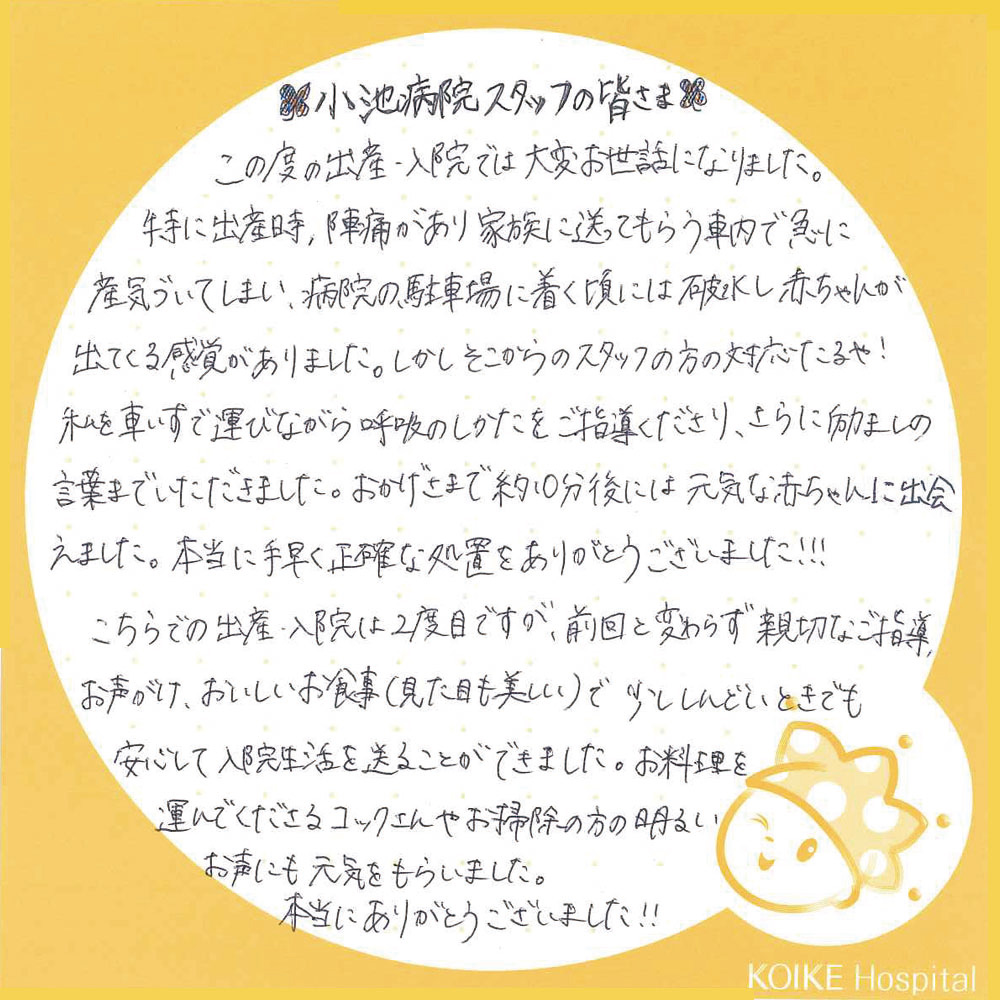 小池病院スタッフの皆さま
この度の出産・入院では大変お世話になりました。
特に出産時、陣痛があり家族に送ってもらう車内で急に
産気づいてしまい、病院の駐車場に着く頃には破水し赤ちゃんが
出てくる感覚がありました。しかしそこからのスタッフの方の対応たるや!
私を車いすで運びながら呼吸のしかたをご指導くださり、さらに励ましの
言葉までいただきました。おかげさまで約10分後には元気な赤ちゃんに出会
えました。本当に手早く正確な処置をありがとうございました!!!
こちらでの出産・入院は2度目ですが、前回と変わらず親切なご指導、
お声がけ、おいしいお食事(見た目も美しい)で少ししんどいときでも
安心して入院生活を送ることができました。お料理を
運んでくださるコックさんやお掃除の方の明るい
お声にも元気をもらいました。
本当にありがとうございました!!
KOIKE Hospital